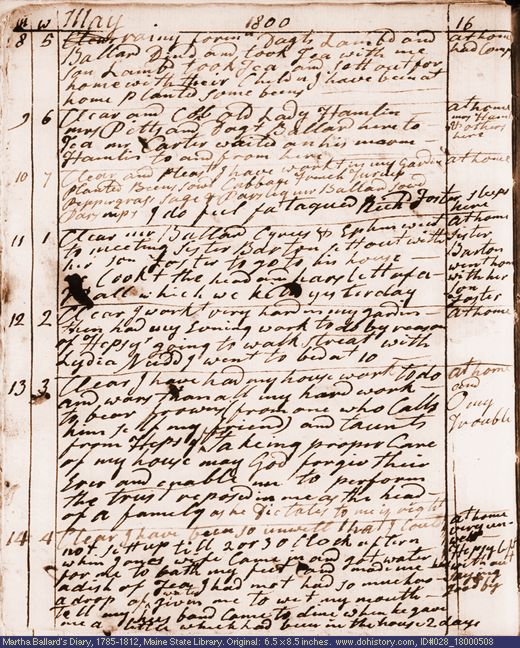 m w May 1800 16
8 5 rainy foren. Dagt Lambd and at home
Ballard Dind and took Tea with me had Comp
son Lambd took Tea and sett out for
home with their Children I have been at
home planted some beens
9 6 Clear and Cold old Lady Hamlin at home
mrs Pitts and Dagt Ballard here to mrs Hamlin
Tea mr Carter waited on his marm & others
Hamlin to and from here here
10 7 Clear and Pleast I have workt in my gardin at home
planted Beens sowd Cabbage
Peppergrass Sage & Parsly mr Ballard sowd
Parsnips I do feel fatagued Rich Foster sleeps here
11 1 Clear mr Ballard Cyrus & Ephm went at home
to meeting Sister Barton sett out with Sister
her son Foster to go to his house Barton
I Cookt the head and harslett of a went home
Calf which we killd yesterday with her son Foster
12 2 Clear I workt very hard in my gardin at home
then had my Evning work to do by reason
of Hepsys going to walk street with
Lydia Nudd I went to bed at 10
13 3 Clear I have had my house work to do at home
and wors than all my hard work and
to bear frowns from one who Calls my
him self my friend and taunts Trouble
from Hepsy Taking proper Care
of my house may God forgive their
Error and enable me to perform
the trust reposed in me as the head
of a family as he Dictates to me is right
14 4 Clear I have been so unwell that I Could at home
not sett up till 2 or 3 O Clock aftern very unwell
when Jones wife Came in and got water Hepsy left
for me to bath my feet and made me without
a dish of Tea I had not had so much as saying
a drop of water given to wett my mouth good by
till my husband Came to dine when he gave
me a little which had been in the house 2 days
Martha Ballard's Diary, 1785-1812, Maine State Library. Original: 6.5 x 8.5 inches. www.dohistory.com, ID#028_18000508